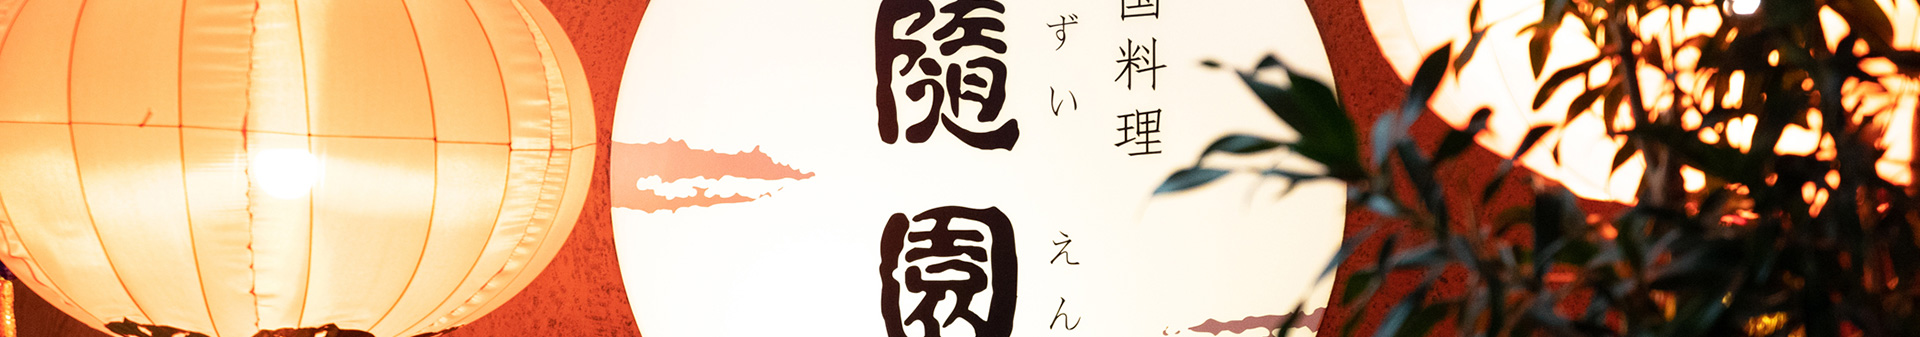 国料理
ずいえん
隨園